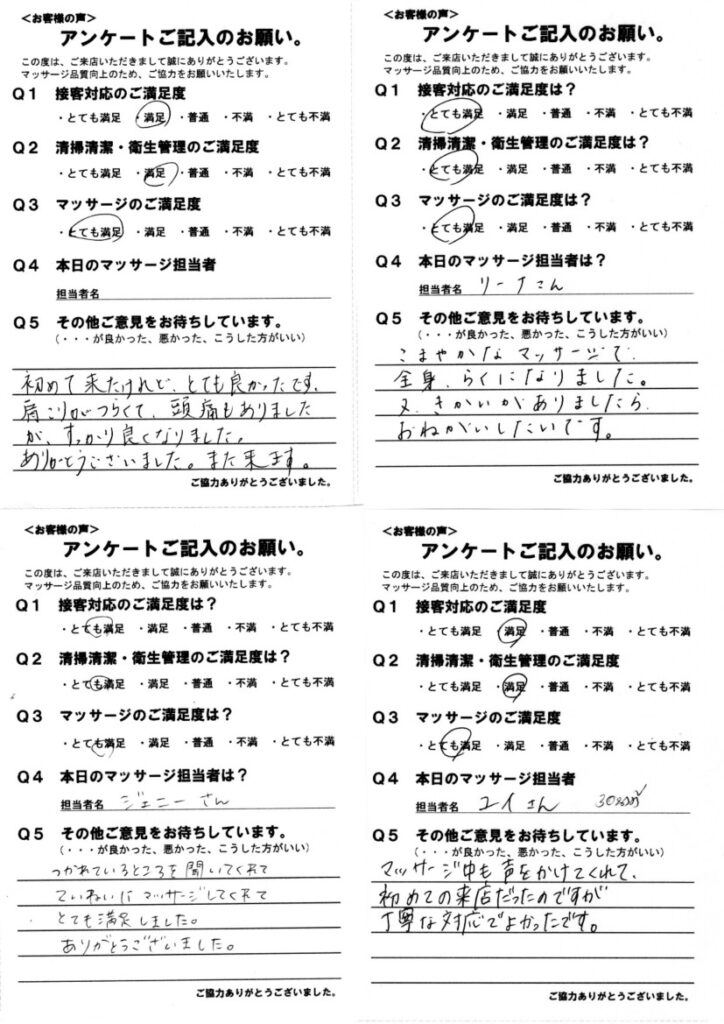 ＜お客様の声＞
アンケートご記入のお願い。
この度は、ご来店いただきまして誠にありがとうございます。
マッサージ品質向上のため、ご協力をお願いいたします。
Q1 接客対応のご満足度
・とても満足 ・満足 ・普通 ・不満 ・とても不満
Q2 清掃清潔・衛生管理のご満足度
・とても満足 ・満足 ・普通 ・不満 ・とても不満
Q3 マッサージのご満足度
・とても満足 ・満足 ・普通 ・不満 ・とても不満
Q4 本日のマッサージ担当者
担当者名
Q5 その他ご意見をお待ちしています。
（・・・が良かった、悪かった、こうした方がいい）
初めて来たけれど、とても良かったです。
肩こりがつらくて、頭痛もありました
が、すっかり良くなりました。
ありがとうございました。また来ます。
ご協力ありがとうございました。
＜お客様の声＞
アンケートご記入のお願い。
この度は、ご来店いただきまして誠にありがとうございます。
マッサージ品質向上のため、ご協力をお願いいたします。
Q1 接客対応のご満足度は？
・とても満足 ・満足 ・普通 ・不満 ・とても不満
Q2 清掃清潔・衛生管理のご満足度は？
・とても満足 ・満足 ・普通 ・不満 ・とても不満
Q3 マッサージのご満足度は？
・とても満足 ・満足 ・普通 ・不満 ・とても不満
Q4 本日のマッサージ担当者は？
担当者名 リーナさん
Q5 その他ご意見をお待ちしています。
（・・・が良かった、悪かった、こうした方がいい）
こまやかなマッサージで、
全身、らくになりました。
又、きかいがありましたら、
おねがいしたいです。
ご協力ありがとうございました。
＜お客様の声＞
アンケートご記入のお願い。
この度は、ご来店いただきまして誠にありがとうございます。
マッサージ品質向上のため、ご協力をお願いいたします。
Q1 接客対応のご満足度は？
・とても満足 ・満足 ・普通 ・不満 ・とても不満
Q2 清掃清潔・衛生管理のご満足度は？
・とても満足 ・満足 ・普通 ・不満 ・とても不満
Q3 マッサージのご満足度は？
・とても満足 ・満足 ・普通 ・不満 ・とても不満
Q4 本日のマッサージ担当者は？
担当者名 ジェニーさん
Q5 その他ご意見をお待ちしています。
（・・・が良かった、悪かった、こうした方がいい）
つかれているところを聞いてくれて
ていねいにマッサージしてくれて
とても満足しました。
ありがとうございました。
ご協力ありがとうございました。
＜お客様の声＞
アンケートご記入のお願い。
この度は、ご来店いただきまして誠にありがとうございます。
マッサージ品質向上のため、ご協力をお願いいたします。
Q1 接客対応のご満足度
・とても満足 ・満足 ・普通 ・不満 ・とても不満
Q2 清掃清潔・衛生管理のご満足度
・とても満足 ・満足 ・普通 ・不満 ・とても不満
Q3 マッサージのご満足度
・とても満足 ・満足 ・普通 ・不満 ・とても不満
Q4 本日のマッサージ担当者
担当者名 ユイさん
Q5 その他ご意見をお待ちしています。
（・・・が良かった、悪かった、こうした方がいい）
マッサージ中も声をかけてくれて、
初めての来店だったのですが
丁寧な対応でよかったです。
ご協力ありがとうございました。